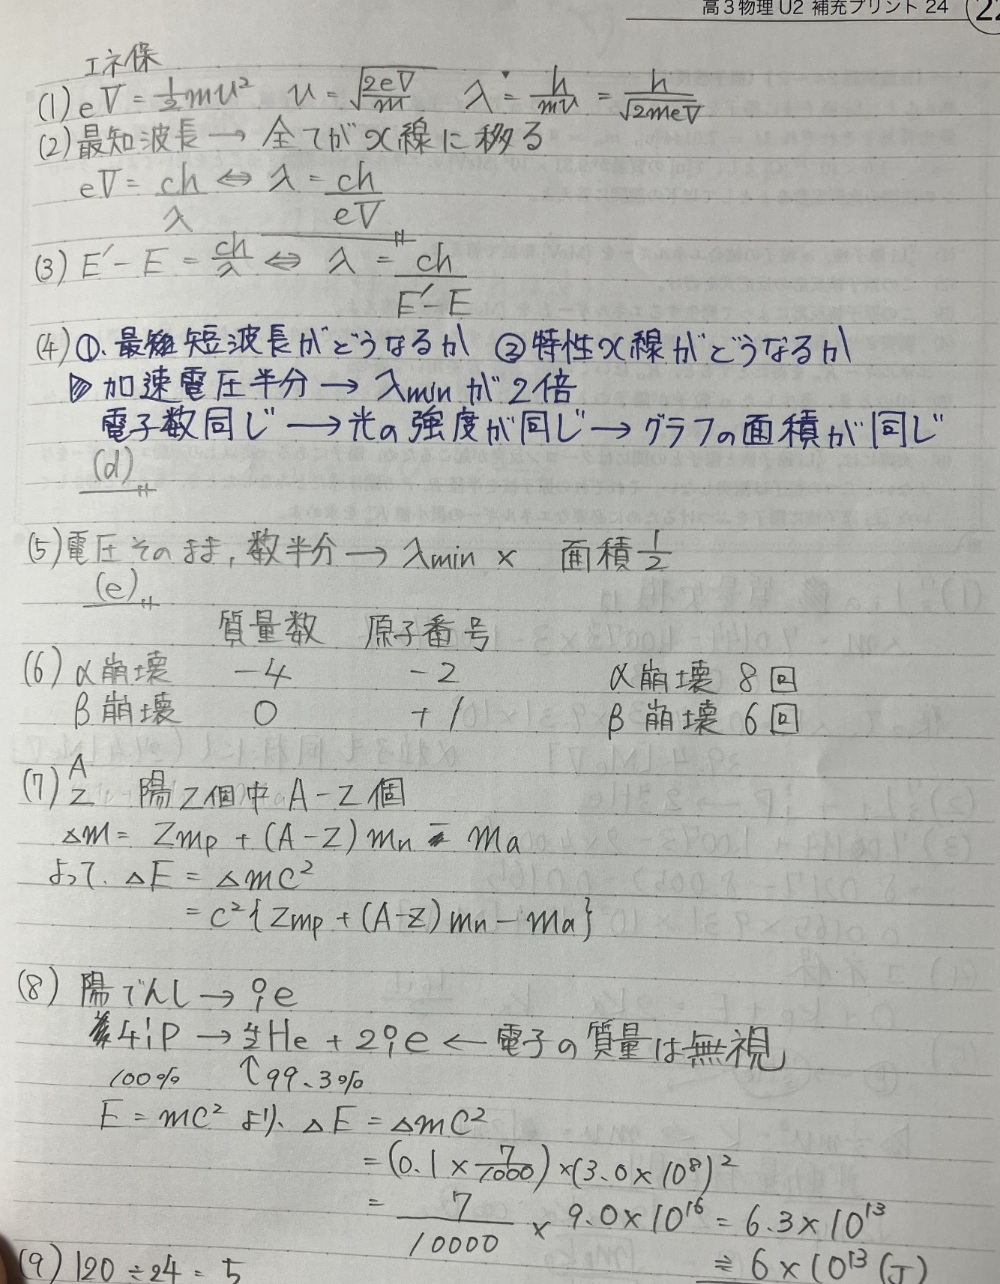 高3物理 U2 補充プリント 24
エネ保
(1) eV = 1/2 mv² v = √(2eV/m) λ = h/mv = h/√(2meV)
(2) 最知波長 → 全てがX線に移る
eV = ch/λ ⇔ λ = ch/eV
(3) E' - E = ch/λ ⇔ λ = ch/(E' - E)
(4) ①. 最短波長がどうなるか ②特性X線がどうなるか
▷ 加速電圧半分 → λmin が 2倍
電子数同じ → 光の強度が同じ → グラフの面積が同じ
(d)
(5) 電圧そのまま, 数半分 → λmin × 面積 1/2
(e)
質量数 原子番号
(6) α崩壊 -4 -2 α崩壊 8回
β崩壊 0 +1 β崩壊 6回
(7) A Z 陽Z個中A-Z個
△M = Zmp + (A-Z)mn - ma
よって、△E = △mc²
= c²{Zmp + (A-Z)mn - ma}
(8) 陽でんし → ⁰₁e
4¹₁P → ⁴₂He + 2⁰₁e ← 電子の質量は無視
100% ↑99.3%
E = mc² より、△E = △mc²
= (0.1 × 7/1000) × (3.0×10⁸)²
= 7/10000 × 9.0×10¹⁶ = 6.3×10¹³
≒ 6×10¹³(J)
(9) 120 ÷ 24 = 5